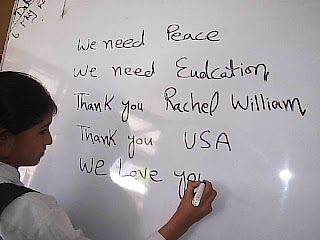 We need Peace
We need Eudcation
Thank you Rachel William
Thank you USA
WE Love you